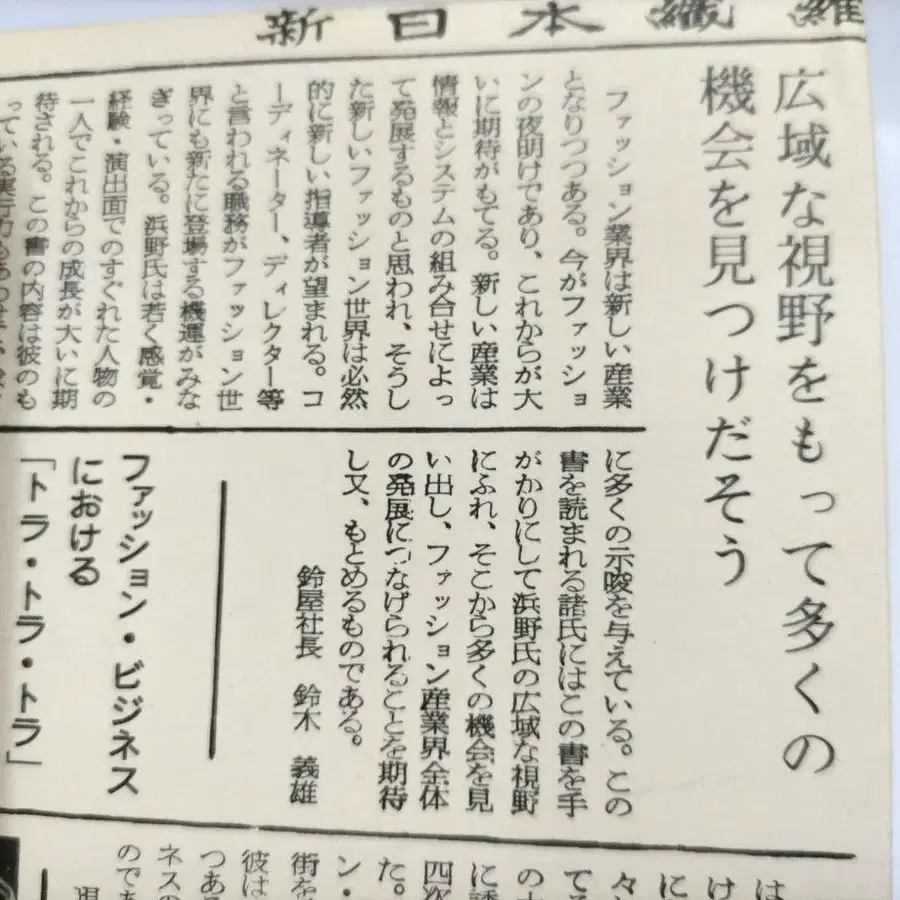 新日本纖維
広域な視野をもって多くの
機会を見つけだそう
ファッション業界は新しい産業
となりつつある。今がファッショ
ンの夜明けであり、これからが大
いに期待がもてる。新しい産業は
情報とシステムの組み合せによっ
て発展するものと思われ、そうし
た新しいファッション世界は必然
的に新しい指導者が望まれる。コ
ーディネーター、ディレクター等
と言われる職務がファッション世
界にも新たに登場する機運がみな
ぎっている。浜野氏は若く感覚・
経験・演出面でのすぐれた人物の
一人でこれからの成長が大いに期
待される。この書の内容は彼のも
っている実行力もあわせて
に多くの示唆を与えている。この
書を読まれる諸氏にはこの書を手
がかりにして浜野氏の広域な視野
にふれ、そこから多くの機会を見
い出し、ファッション産業界全体
の発展につなげられることを期待
し又、もとめるものである。
鈴屋社長 鈴木 義雄
ファッション・ビジネス
における
「トラ・トラ・トラ」
は
け
に
々と
てる
の大
に誘
四次
た。
ン・
街を
彼は
つある
ネスの
のであ